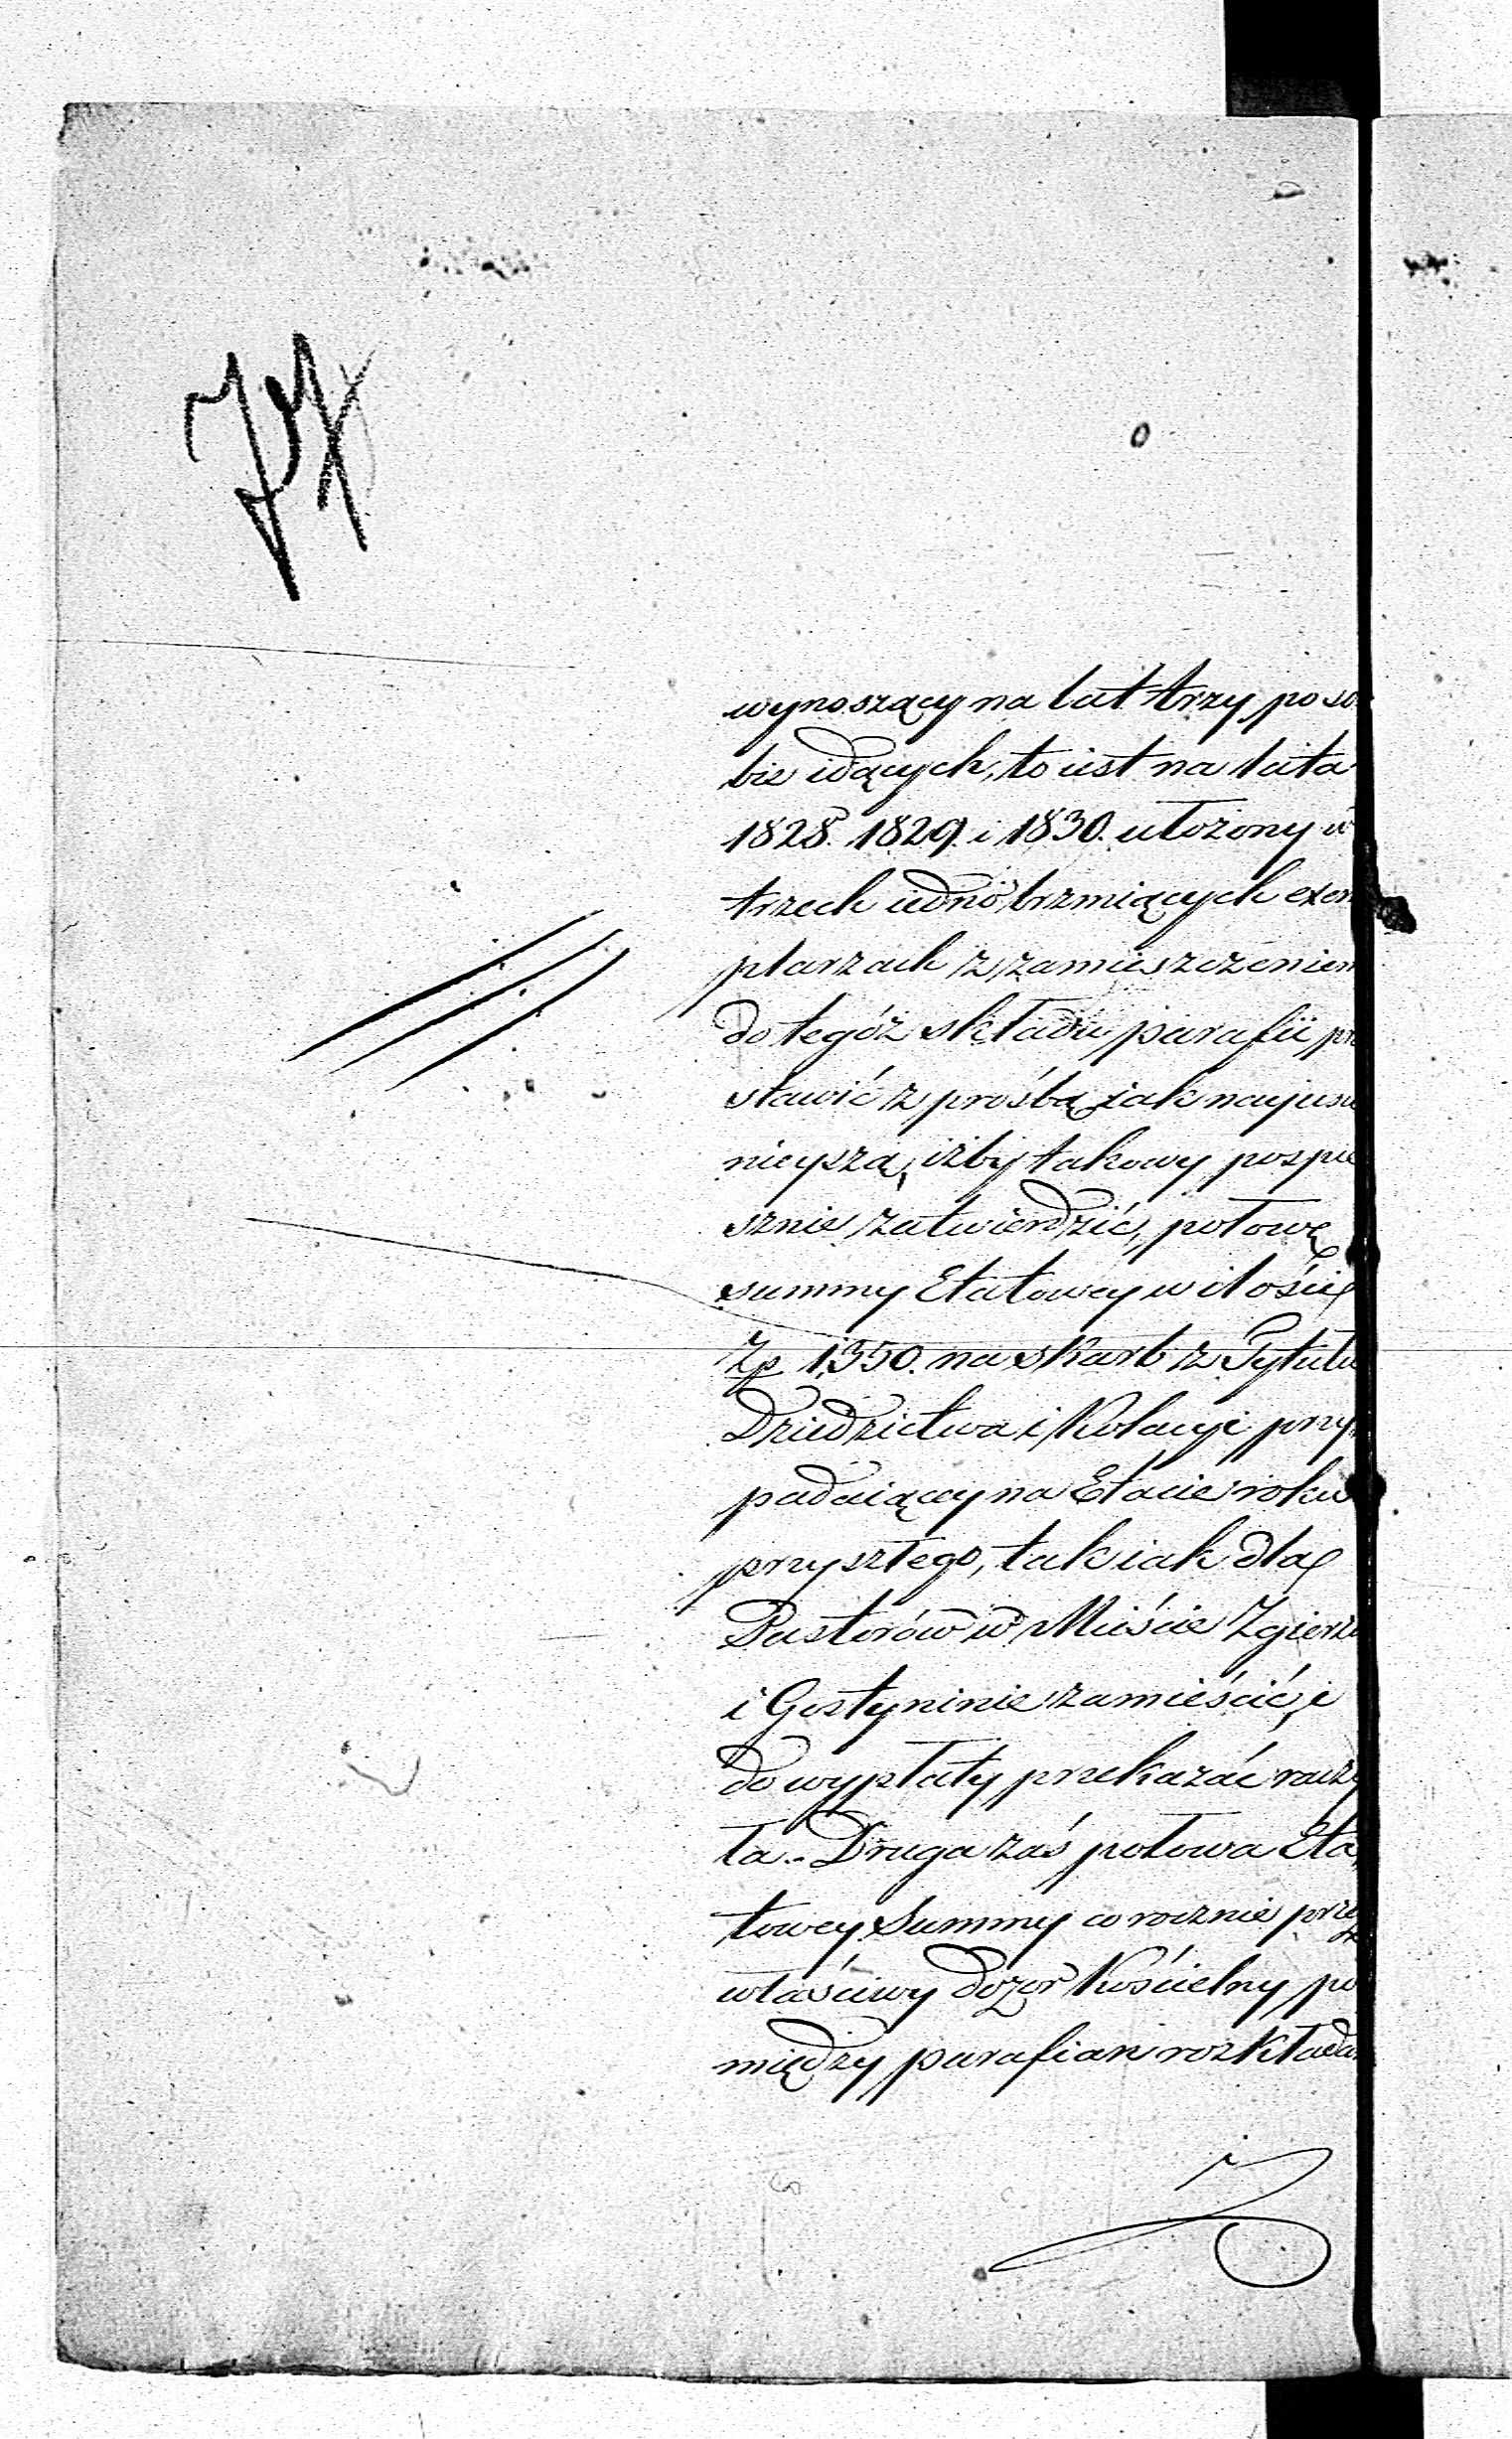 wynoszący na lat trzy po so
bie idących, to iest na lata
1828. 1829. i 1830. ułożony w
trzech iedno brzmiących exem
plarzach z zamieszczeniem
do tegóż składu parafii prz
stawić z prośbą iak nayusil
nieyszą, iżby takowy pospie
sznie zatwierdzić, połowę
summy Etatowey w ilości
Zp 1,350. na skarb z Tytułu
Dziedzictwa i Kolacyi przy
padaiący na Etacie roku
przyszłego, tak iak dla
Pastorów w Mieście Zgierzu
i Gostyninie zamieścić, i
do wypłaty przekazać raczy
ła. Druga zaś połowa Eta
towey Summy corocznie przez
właściwy dozór Kościelny po
między parafian rozkłada